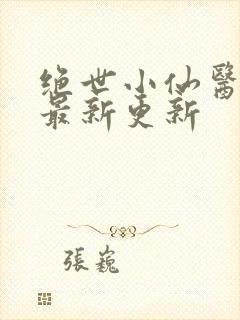 绝世小仙医
最新更新
張巍